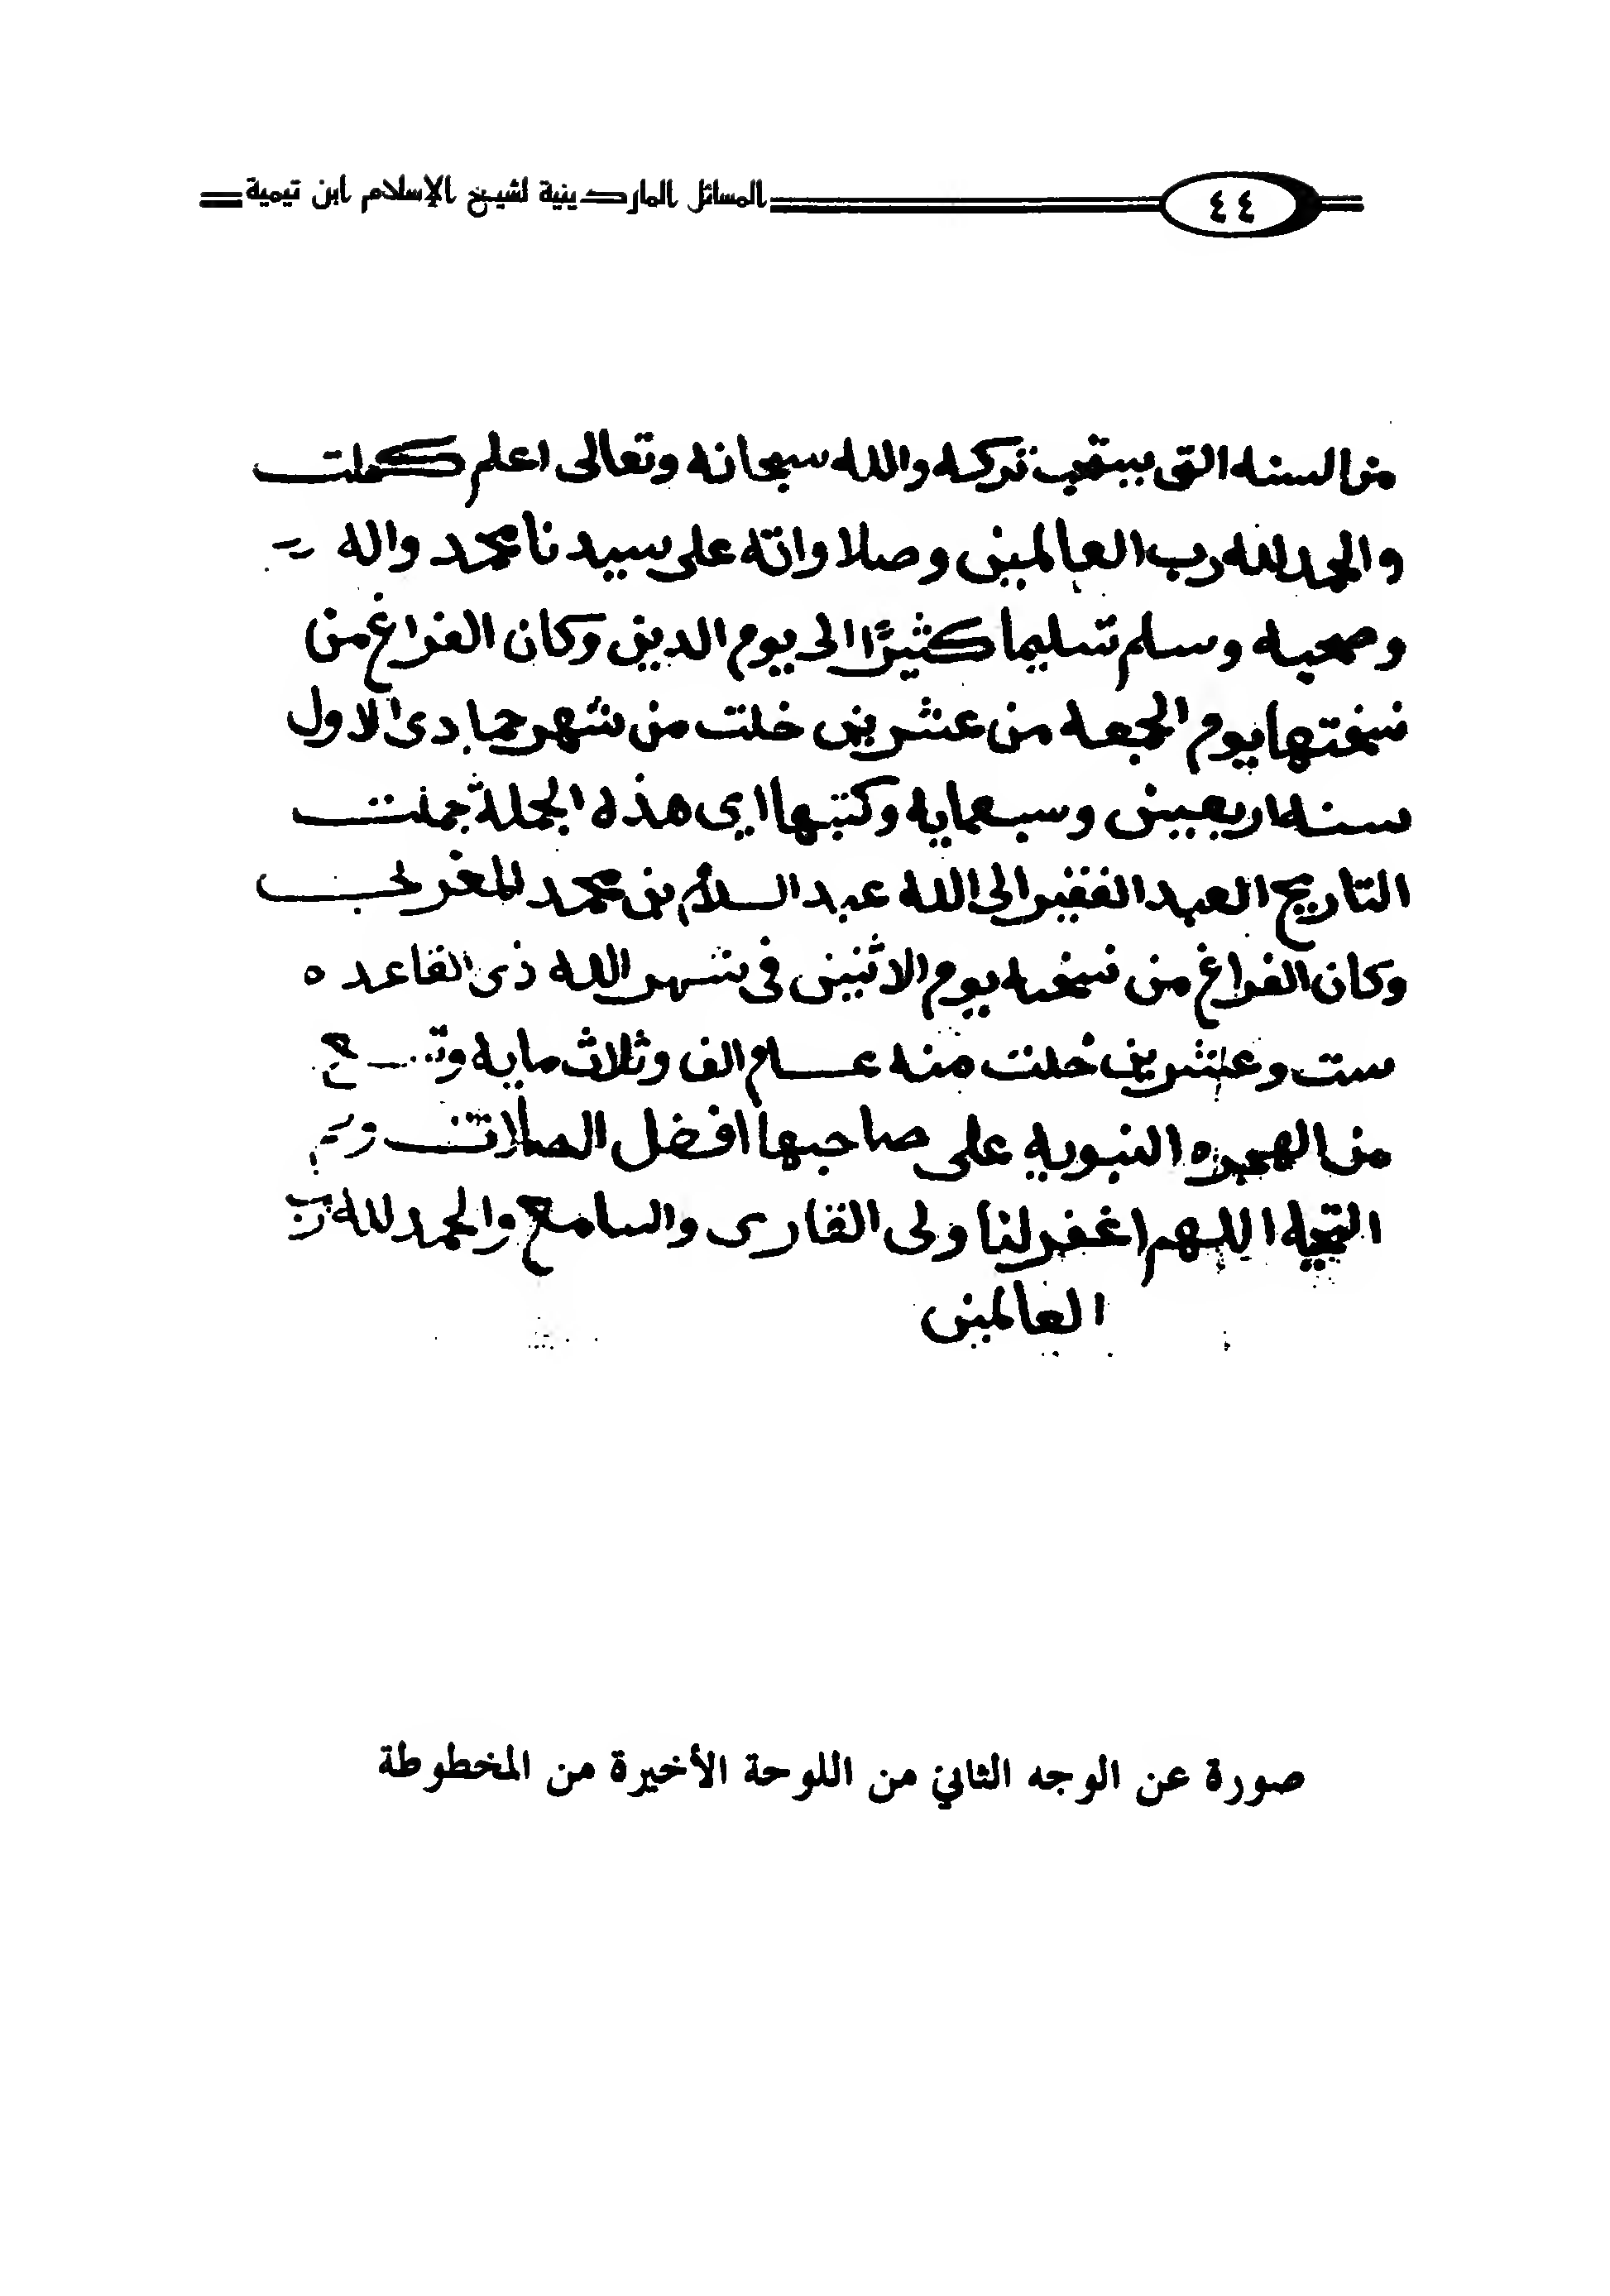 ٤٤ المسائل الماردينية لشيخ الإسلام ابن تيمية
من السنه التى يستحب تركه والله سبحانه وتعالى اعلم كملت
والحمد لله رب العالمين وصلاواته على سيدنا محمد واله
وصحبه وسلم تسليما كثيرًا الى يوم الدين وكان الفراغ من
نسختها يوم الجمعه من عشرين خلت من شهر جمادى الاول
سنه اربعين وسبعمايه وكتبها اي هذه الجملة
التاريخ العبد الفقير الى الله عبد السلام بن محمد المغربى
وكان الفراغ من نسخه يوم الاثنين فى شهر الله ذى القاعده
ست وعشرين خلت منه عام الف وثلاث مايه
من الهجره النبويه على صاحبها افضل الصلاة
التحيه اللهم اغفر لنا ولى القارى والسامع والحمد لله رب
العالمين
صورة عن الوجه الثاني من اللوحة الأخيرة من المخطوطة